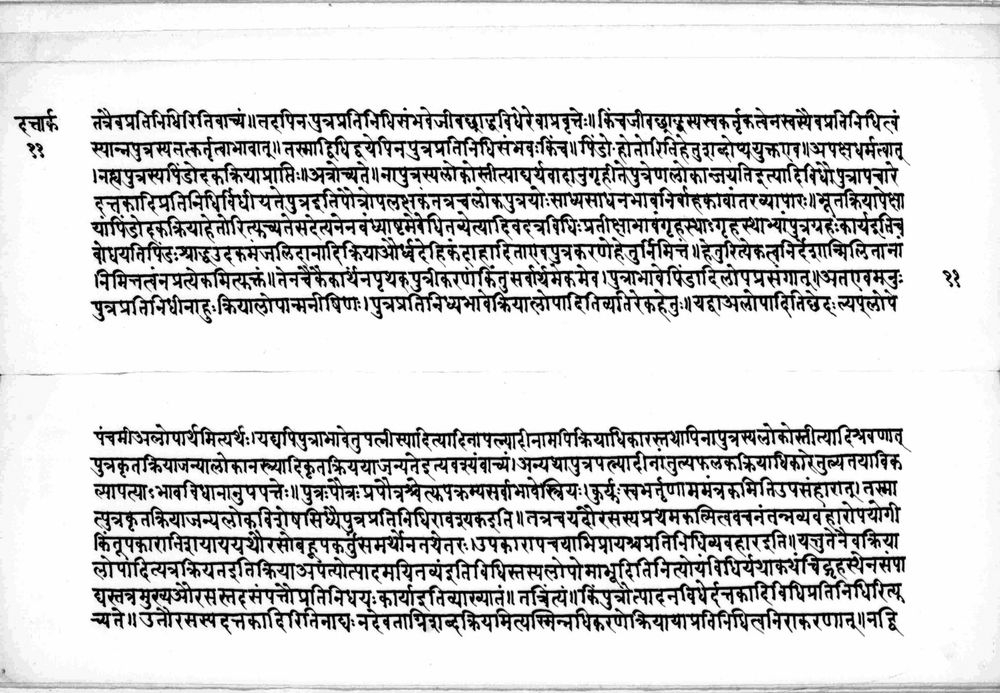 दत्तार्क
११
तंत्रैवप्रतिनिधिरितिवाच्यं॥तदपिनपुत्रप्रतिनिधिसंभवेजीवछ्राद्धविधेरेवाप्रवृत्तेः॥किंचजीवछ्राद्धस्यस्वकर्तृकत्वेनस्वस्यैवप्रतिनिधित्वं
स्यान्नपुत्रस्यतत्कर्तृत्वाभावात्॥तस्माद्विधिद्वयेपिनपुत्रप्रतिनिधिसंभवःकिंच॥पिंडोहोतोरितिहेतुशब्दोप्ययुक्तएव॥अपक्षधर्मत्वात्
।नह्यपुत्रस्यपिंडोदकक्रियाप्राप्तिः॥अत्रोच्यते॥नापुत्रस्यलोकोस्तीत्याद्यर्थवादानुगृहीतेपुत्रेणलोकान्जयतिइत्यादिविधौपुत्रापचारे
दत्तकादिप्रतिनिधिर्विधीयतेपुत्रइतिपौत्रोपलक्षकंतत्रचलोकपुत्रयोःसाध्यसाधनभावनिर्वाहकोवांतरव्यापारः॥भूतक्रियापेक्षा
यांपिंडोदकक्रियाहेतोरित्युच्यतेसदेत्यनेनवंध्याष्टमेवेधितयेत्यादिवदत्रविधिःप्रतीक्षाभावंगृहस्थाऽगृहस्थाभ्यांपुत्रग्रहःकार्यइतिच
बोधयतिपिंडःश्राद्धउदकमंजलिदानादिक्रियाऔर्ध्वदेहिकंदाहादिताएवपुत्रकरणेहेतुर्निमित्तं॥हेतुरित्येकत्वनिर्देशान्मिलितानां
निमित्तत्वंनप्रत्येकमित्युक्तं॥तेनचैकैकार्थेनपृथक्पुत्रीकरणंकिंतुसर्वार्थमेकमेव।पुत्राभावेपिंडादिलोपप्रसंगात्॥अतएवमनुः
११
पुत्रप्रतिनिधीनाहुःक्रियालोपान्मनीषिणः।पुत्रप्रतिनिध्यभावेक्रियालोपादितिव्यतिरेकहेतुः॥यद्वाअलोपादितिछेदःल्यप्लोपे
पंचमीअलोपार्थमित्यर्थः।यद्यपिपुत्राभावेतुपत्नीस्यादित्यादिनापत्न्यादीनामपिक्रियाधिकारस्तथापिनापुत्रस्यलोकोस्तीत्यादिश्रवणात्
पुत्रकृतक्रियाजन्यालोकानस्त्र्यादिकृतक्रिययाजन्यतेइत्यवश्यंवाच्यं।अन्यथापुत्रपत्न्यादीनांतुल्यफलकक्रियाधिकारेतुल्यतयाविक
ल्पापत्याऽभावविधानानुपपत्तेः॥पुत्रःपौत्रःप्रपौत्रश्चेत्युपक्रम्यसर्वाभावेस्त्रियःकुर्युःस्वभर्तॄणाममंत्रकमितिउपसंहारात्।तस्मा
त्पुत्रकृतक्रियाजन्यलोकविशेषसिध्यैपुत्रप्रतिनिधिरावश्यकइति॥तत्रचयदौरसस्यप्रथमकल्पित्ववचनंतन्नव्यवहारोपयोगी
किंतूपकारातिशयाययथौरसोबहूपकर्तुंसमर्थोनतथेतरः।उपकारापचयाभिप्रायश्चप्रतिनिधिव्यवहारइति॥यत्तुतेनैवक्रिया
लोपोदित्यत्रक्रियतइतिक्रियाअपत्योत्पादमयितव्यंइतिविधिस्तस्यलोपोमाभूदितिनित्योयंविधिर्यथाकथंचिद्गृहस्थेनसंपा
द्यस्तत्रमुख्यऔरसस्तदसंपत्तौप्रतिनिधयःकार्याइतिव्याख्यातं॥तचिंत्यं॥किंपुत्रोत्पादनविधेर्दत्तकादिविधिप्रतिनिधिरित्यु
च्यते॥उतौरसस्यदत्तकादिरितिनाद्यःनदेवताग्निशब्दक्रियमित्यस्मिन्नधिकरणेक्रियायाप्रतिनिधित्वनिराकरणात्॥नद्वि